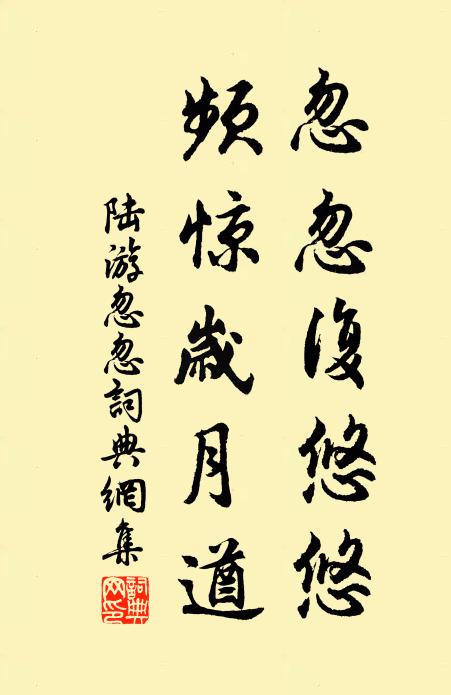 忽忽復悠悠
頻惊歲月遒
陆游忽忽詞典網集
詞典
网印